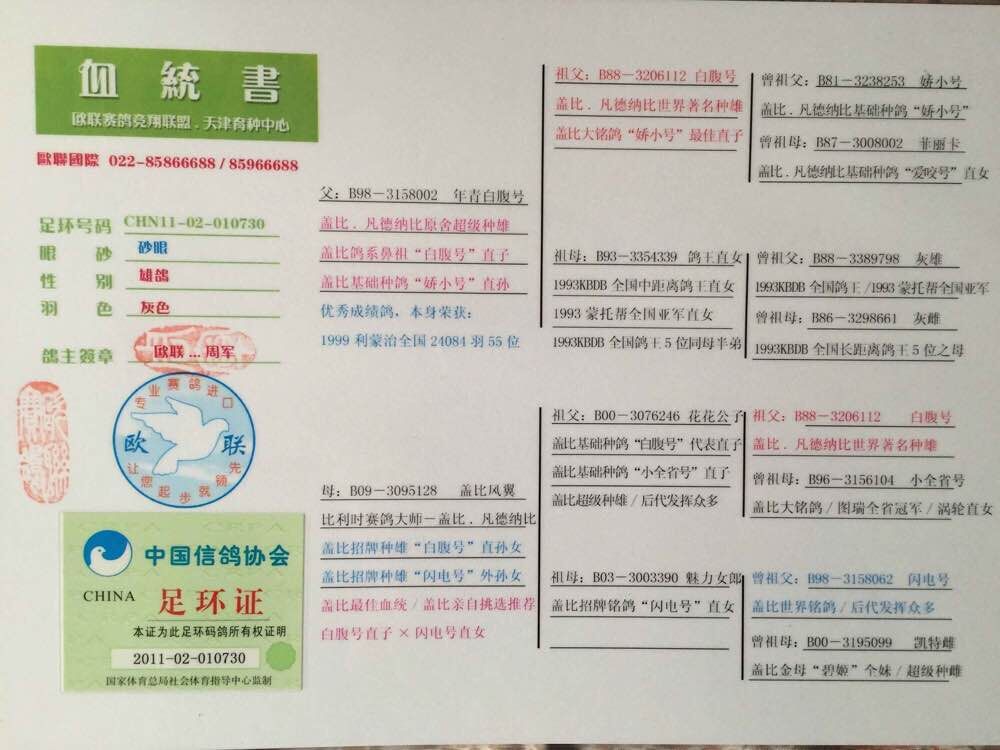 血統書
欧联赛鸽竞翔联盟.天津育种中心
歐聯國際 022-85866688 / 85966688
足环号码 CHN11-02-010730
眼砂 砂眼
性别 雄鸽
羽色 灰色
鸽主簽章 欧联...周军
专业赛鸽进口
欧 联
让您起步就领先
中国信鸽协会
CHINA 足环证
本证为此足环码鸽所有权证明
2011-02-010730
国家体育总局社会体育指导中心监制
父：B98-3158002 年青白腹号
盖比.凡德纳比原舍超级种雄
盖比鸽系鼻祖“白腹号”直子
盖比基础种鸽“娇小号”直孙
优秀成绩鸽，本身荣获：
1999 利蒙治全国 24084 羽 55 位
母：B09-3095128 盖比风翼
比利时赛鸽大师-盖比.凡德纳比
盖比招牌种雄“白腹号”直孙女
盖比招牌种雄“闪电号”外孙女
盖比最佳血统/盖比亲自挑选推荐
白腹号直子×闪电号直女
祖父：B88-3206112 白腹号
盖比.凡德纳比世界著名种雄
盖比大铭鸽“娇小号”最佳直子
祖母：B93-3354339 鸽王直女
1993KBDB 全国中距离鸽王直女
1993 蒙托帮全国亚军直女
1993KBDB 全国鸽王 5 位同母半弟
祖父：B00-3076246 花花公子
盖比基础种鸽“白腹号”代表直子
盖比基础种鸽“小全省号”直子
盖比超级种雄/后代发挥众多
祖母：B03-3003390 魅力女郎
盖比招牌铭鸽“闪电号”直女
曾祖父：B81-3238253 娇小号
盖比.凡德纳比基础种鸽“娇小号”
曾祖母：B87-3008002 菲丽卡
盖比.凡德纳比基础种鸽“爱咬号”直女
曾祖父：B88-3389798 灰雄
1993KBDB 全国鸽王/1993 蒙托帮全国亚军
曾祖母：B86-3298661 灰雌
1993KBDB 全国长距离鸽王 5 位之母
祖父：B88-3206112 白腹号
盖比.凡德纳比世界著名种雄
曾祖母：B96-3156104 小全省号
盖比大铭鸽/图瑞全省冠军/涡轮直女
曾祖父：B98-3158062 闪电号
盖比世界铭鸽/后代发挥众多
曾祖母：B00-3195099 凯特雌
盖比金母“碧姬”全妹/超级种雌